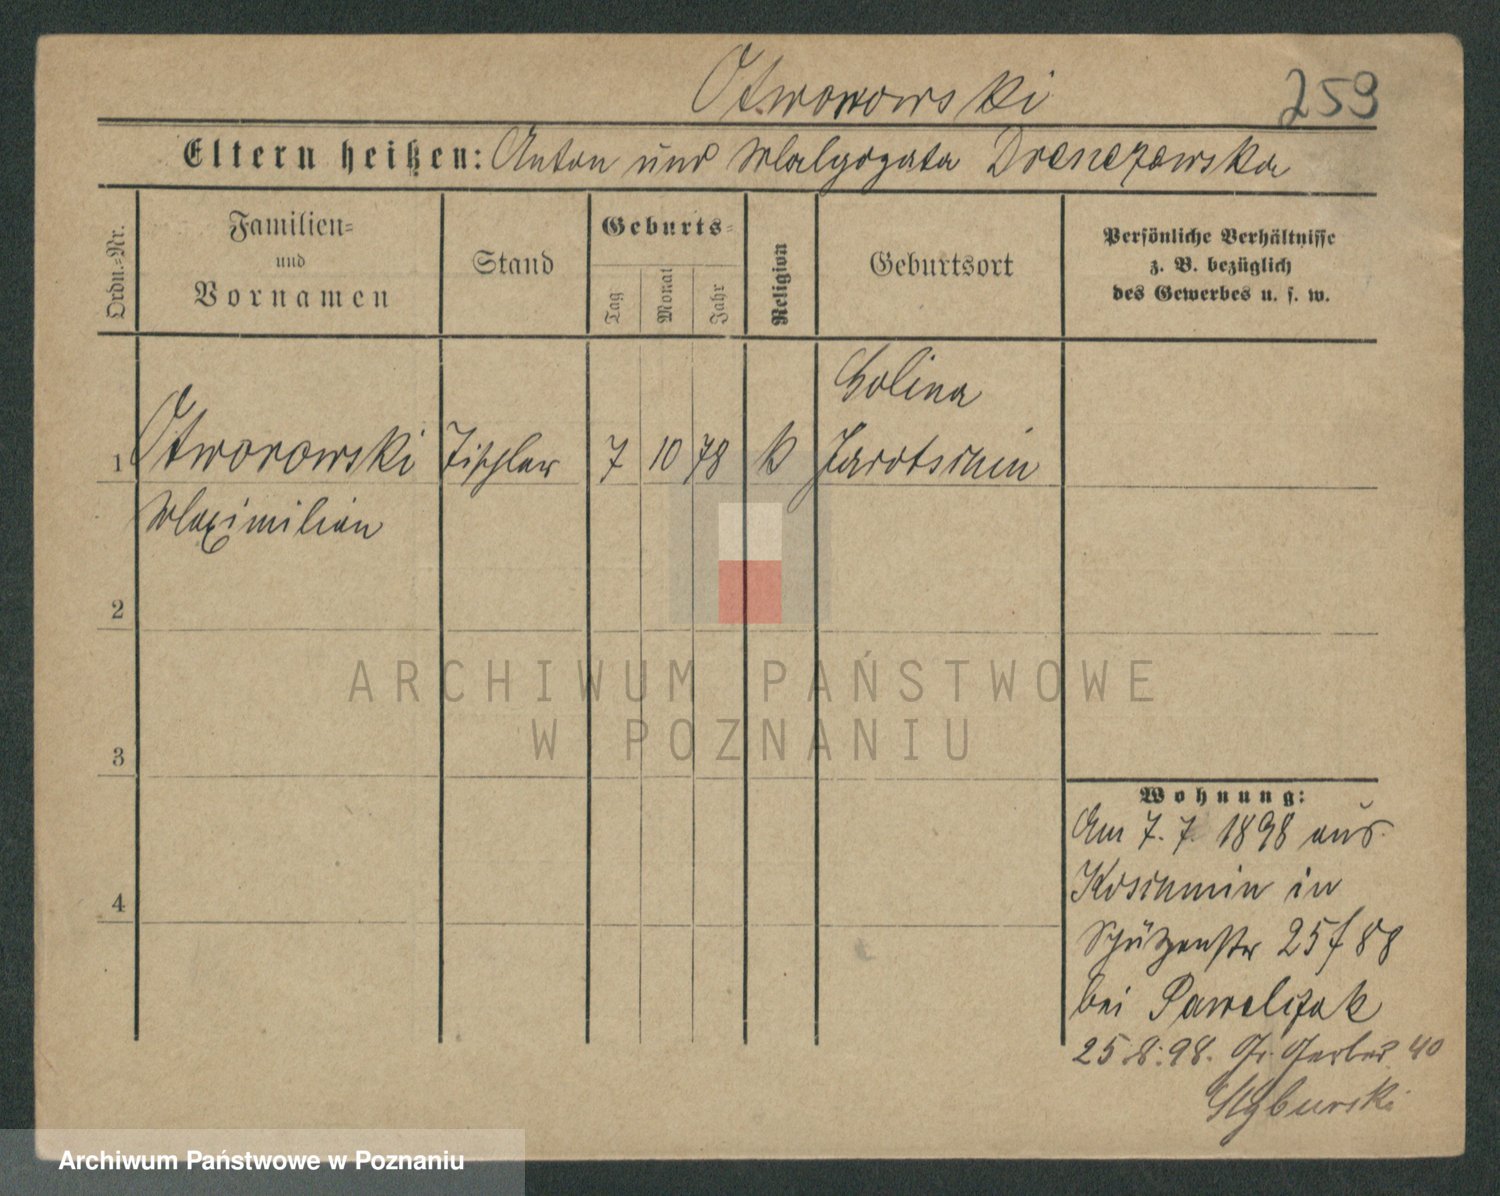 Otworowski 259
Eltern heißen: Anton und Malgozata Drenczewska
Ordn.-Nr.
Familien-
und
Vornamen
Stand
Geburts-
Tag
Monat
Jahr
Religion
Geburtsort
Persönliche Verhältnisse
z. B. bezüglich
des Gewerbes u. s. w.
Golina
1 Otworowski Tischler 7 10 78 k Jarotschin
Maximilian
2
ARCHIWUM PAŃSTWOWE
W POZNANIU
3
Wohnung:
Am 7.7. 1898 aus
Koschmin in
4
Schützenstr 25 f 88
bei Pawelczak
25.8.98. Gr. Gerber 40
Styburski
Archiwum Państwowe w Poznaniu